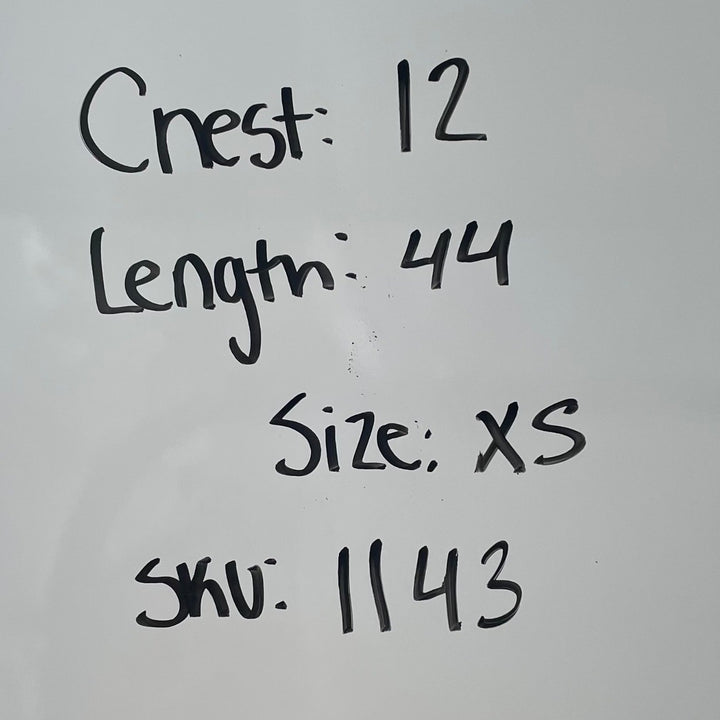 Chest: 12
Length: 44
Size: XS
SKU: 1143